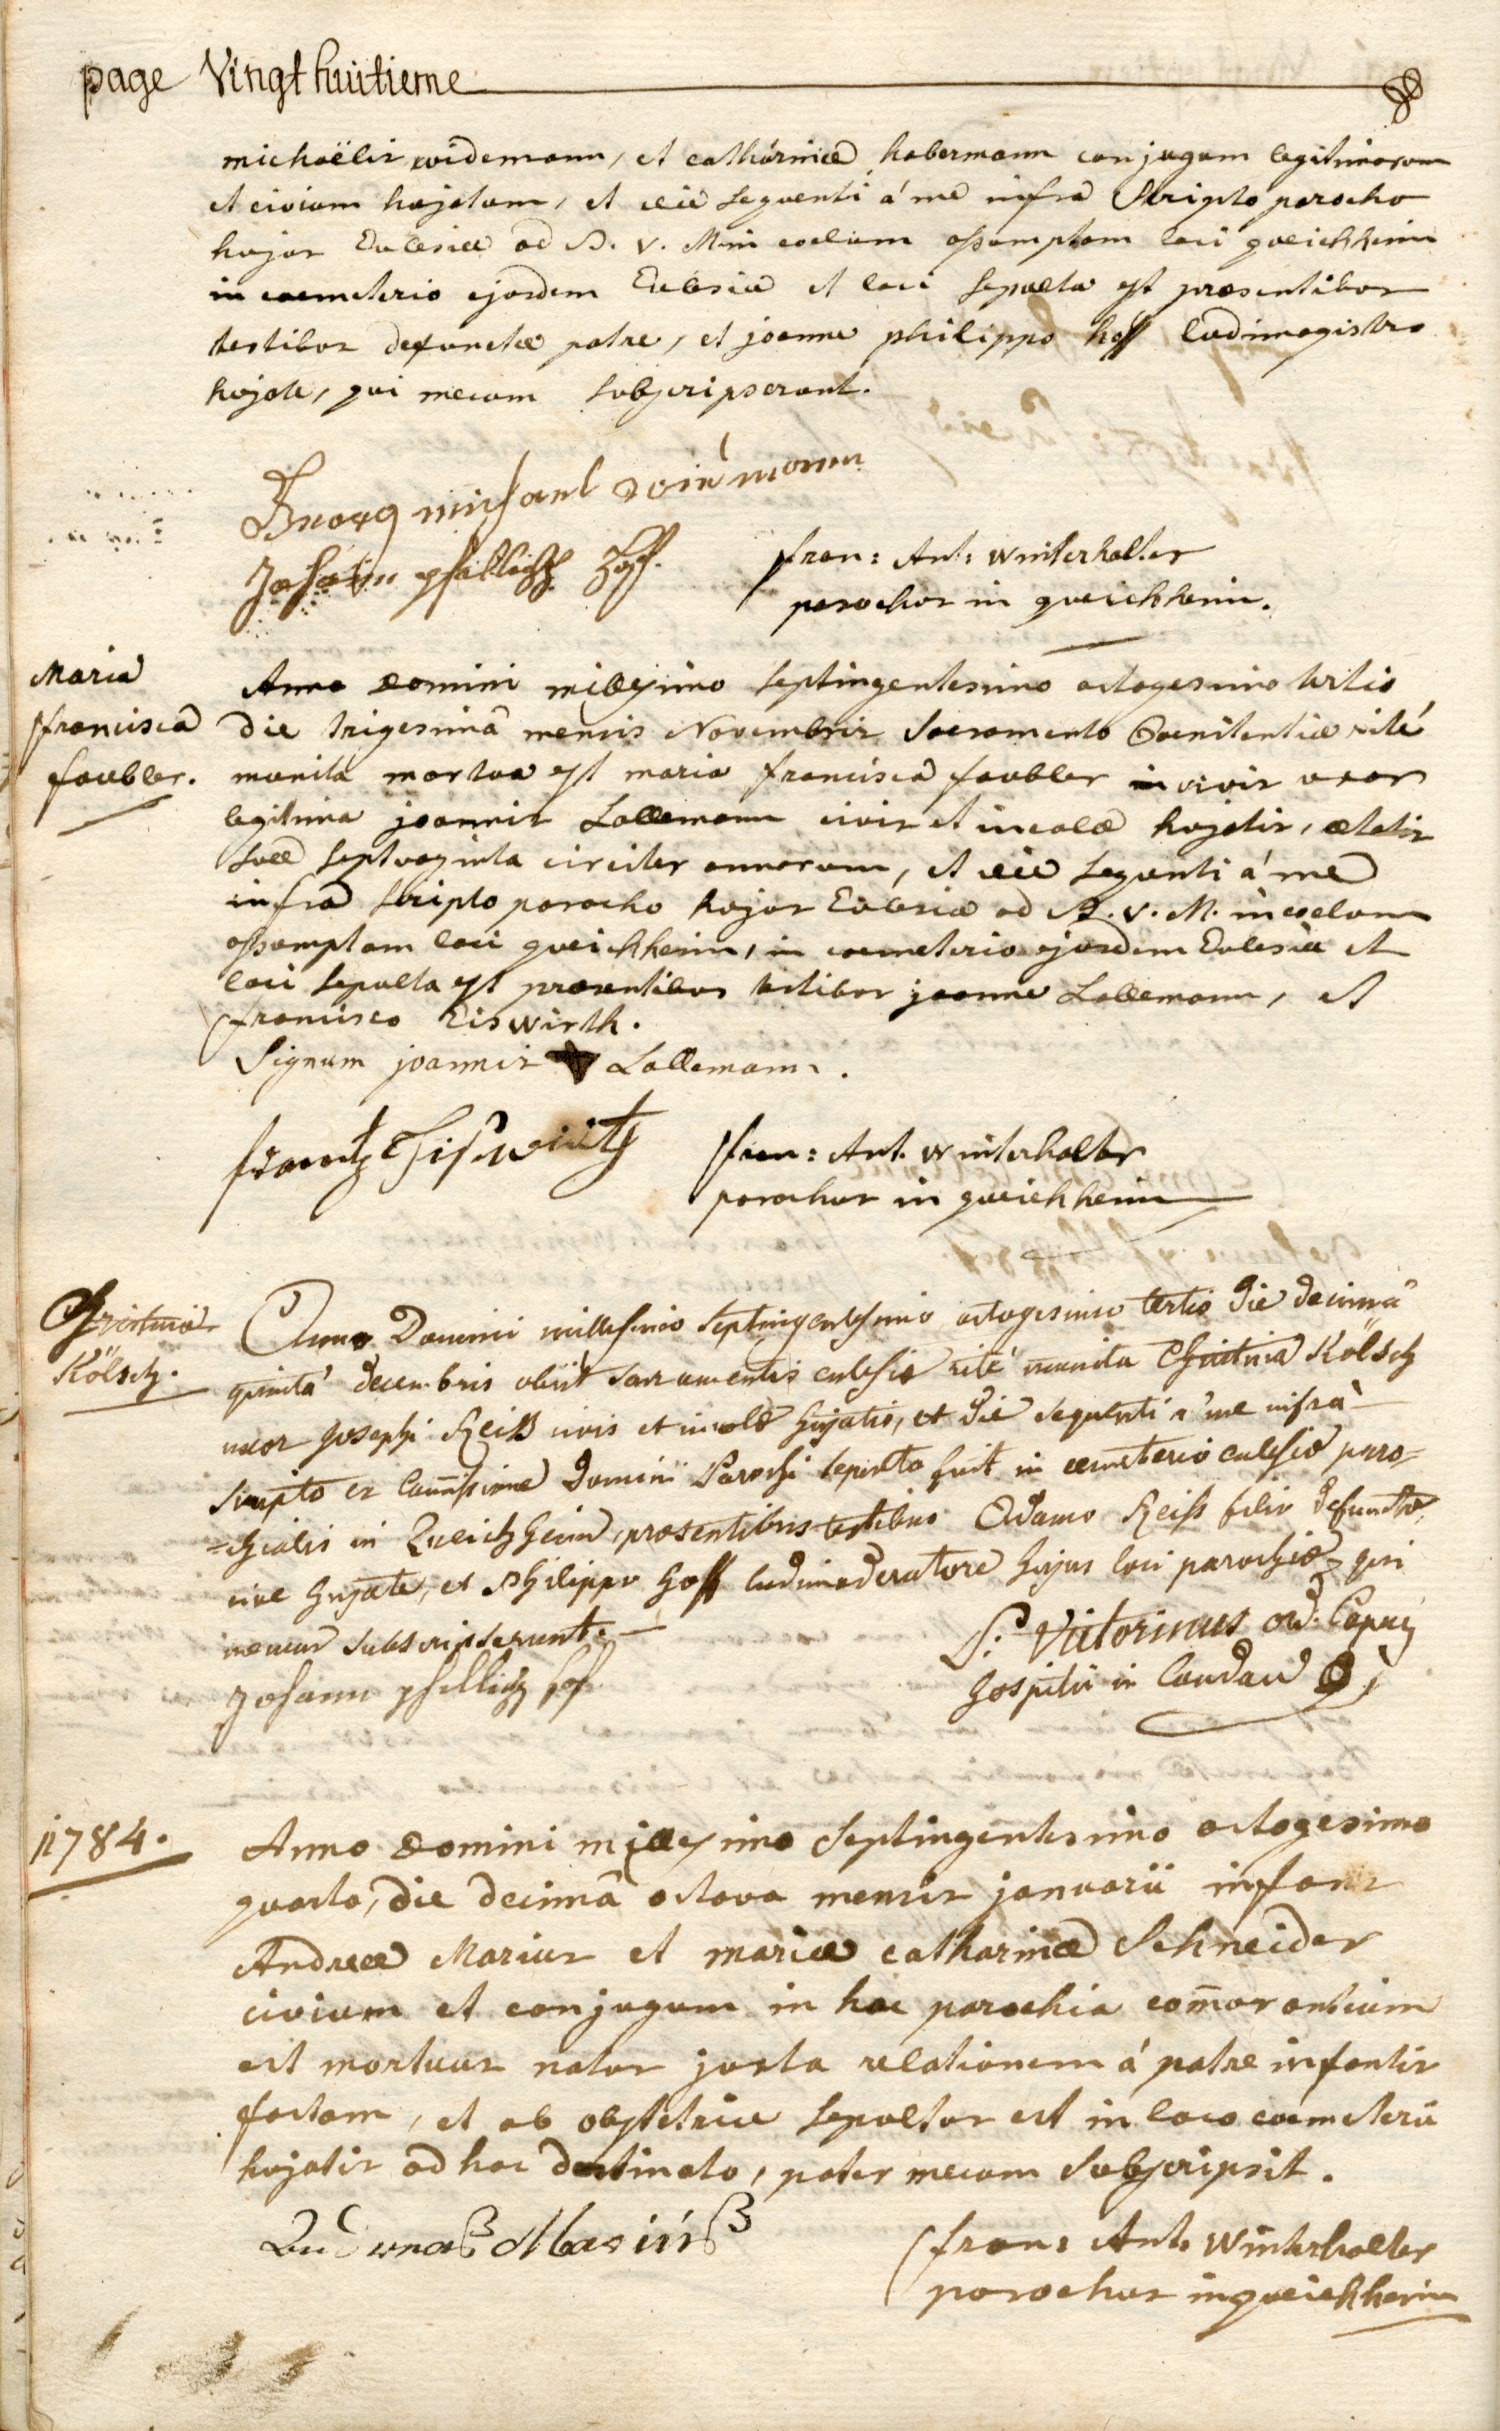 page Vingt huitieme
michaëlis widemann, et catharinæ habermann conjugum legitimorum
et civium hujatum, et die sequenti á me infra scripto parocho
hujus Ecclesiæ ad B. V. M. in coelum assumptam loci queichheim
in coemeterio ejusdem Ecclesiæ et loci sepulta est præsentibus
testibus defunctæ patre, et joanne philippo hoff ludimagistro
hujate, qui mecum subscripserunt.
Georg michael widmann
Johann phillipp Hoff.
fran: Ant: winterhalter
parochus in queichheim.
Maria
francisca
faubler.
Anno Domini millesimo septingentesimo octogesimo tertio
die trigesimâ mensis Novembris Sacramento Poenitentiæ rité
munita mortua est maria francisca faubler in vivis uxor
legitima joannis Lallemann civis et incolæ hujatis, ætatis
suæ septuaginta circiter annorum, et die sequenti á me
infra scripto parocho hujus Ecclesiæ ad B. V. M. in coelum
assumptam loci queichheim, in coemeterio ejusdem Ecclesiæ et
loci sepulta est præsentibus testibus joanne Lallemann, et
francisco Eiswirth.
Signum joannis Lallemann.
frantz Eiswirth
fran: Ant. winterhalter
parochus in queichheim
Christina
Kölsch.
Anno Domini millesimo septingentesimo octogesimo tertio die decimâ
quintâ decembris obiit sacramentis ecclesiæ rité munita Christina Kölsch
uxor Josephi Reiß civis et incolæ hujatis, et die sequenti a me infrà
scripto ex Domini Parochi sepulta fuit in cemeterio ecclesiæ paro=
=chialis in Queichheim, præsentibus testibus Adamo Reiss filio defunctæ,
cive hujate, et Philippo Hoff ludimoderatore hujus loci parochiæ, qui
mecum subscripserunt.
Johann phillipp hof
P. Victorinus ord: Capuc
hospitii in Landau
1784.
Anno Domini millesimo septingentesimo octogesimo
quarto, die decimâ octava mensis januarii infans
Andreæ Marius et mariæ catharinæ Schneider
civium et conjugum in hac parochia com̄orantium
est mortuus natus juxta relationem á patre infantis
factam, et ab obstetrice sepultus est in loco coemeterii
hujatis ad hoc destinato, pater mecum subscripsit.
Andreas Mariuß
fran: Ant. Winterhalter
parochus in queichheim